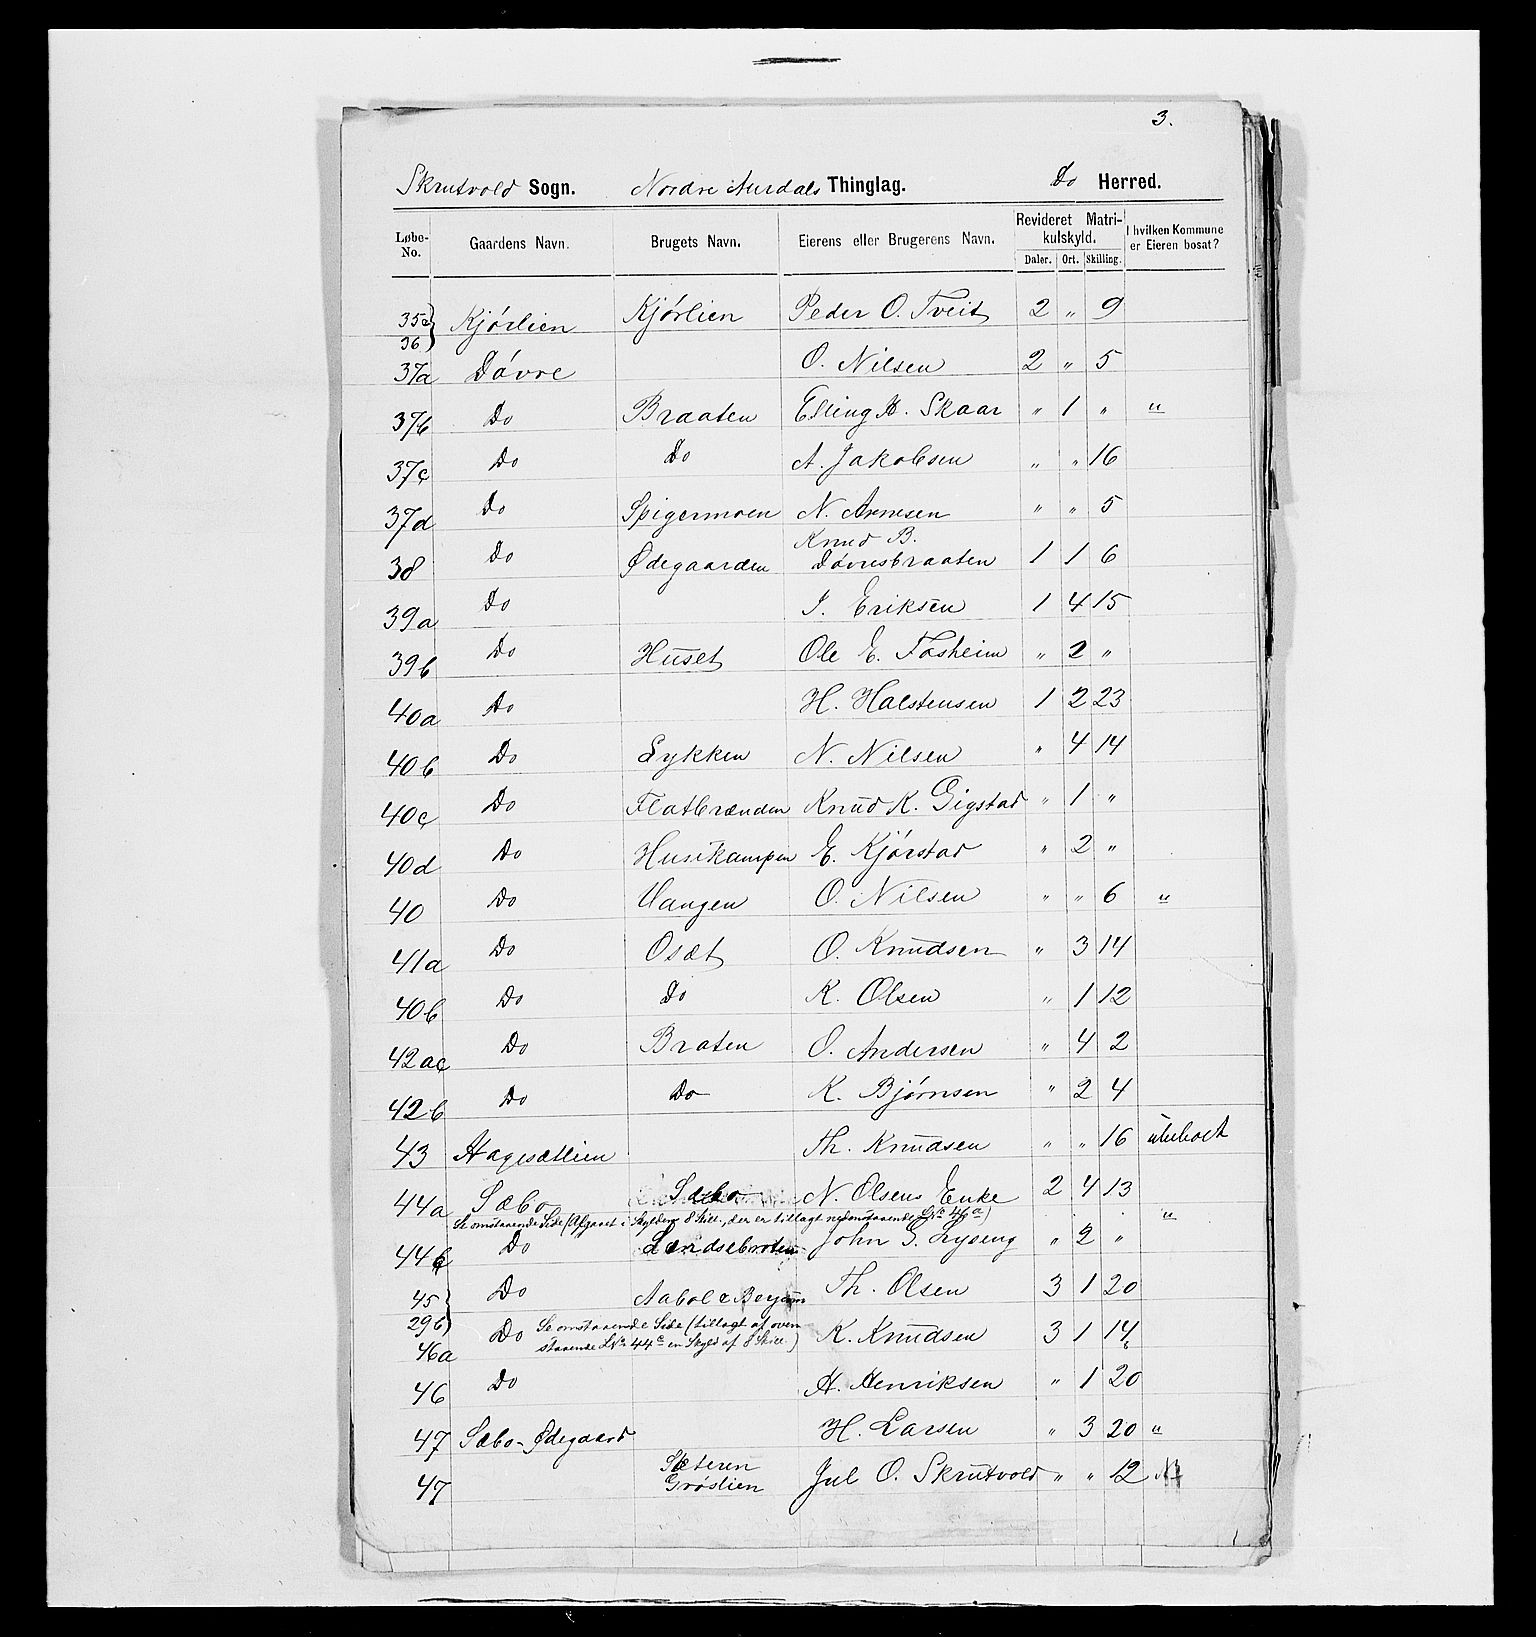 3.
Skrutvold Sogn. Nordre Aurdals Thinglag. Do Herred.
Løbe-No. Gaardens Navn. Brugets Navn. Eierens eller Brugerens Navn. Revideret Matri-kulskyld. Daler. Ort. Skilling. I hvilken Kommune er Eieren bosat?
35a 36 } Kjørlien Kjørlien Peder O. Tveit 2 " 9
37a Døvre O. Nilsen 2 " 5
37b Do Braaten Elling H. Skaar " 1 " "
37c Do Do A. Jakobsen " " 16
37d Do Spigermoen N. Arnesen " " 5
38 Do Ødegaarden Knud B. Døvresbraaten 1 1 6
39a Do J. Eriksen 1 4 15
39b Do Huset Ole E. Fosheim " 2 "
40a Do H. Halstensen 1 2 23
40b Do Lykken N. Nilsen " 4 14
40c Do Flatbrænden Knud K. Gigstad " 1 "
40d Do Husekampen E. Kjørstad " 2 "
40 Do Vangen O. Nilsen " " 6 "
41a Do Osæt O. Knudsen " 3 14
40b Do Do K. Olsen " 1 12
42ac Do Braten O. Andersen " 4 2
42b Do Do K. Bjørnsen " 2 4
43 Hagesætlien Th. Knudsen " " 16 ubeboet
44a Sæbo Sæbo N. Olsens Enke 2 4 13
Se omstaaende Side (Afgaaet i Skylden 8 Skill., der er tillagt nedenstaaende LNo 46a) "
44b Do John G. Lyseng " 2 "
45 29b } Do Aabol & Th. Olsen 3 1 20
46a Do Se omstaaende Side (tillagt af oven-staaende LNo 44c en Skyld af 8 Skill.) K. Knudsen 3 1 14
46 Do H. Henriksen " 1 20
47 Sæbo-Ødegaard H. Larsen " 3 20 "
47 Sæteren Grøslien Jul O. Skrutvold " " 12